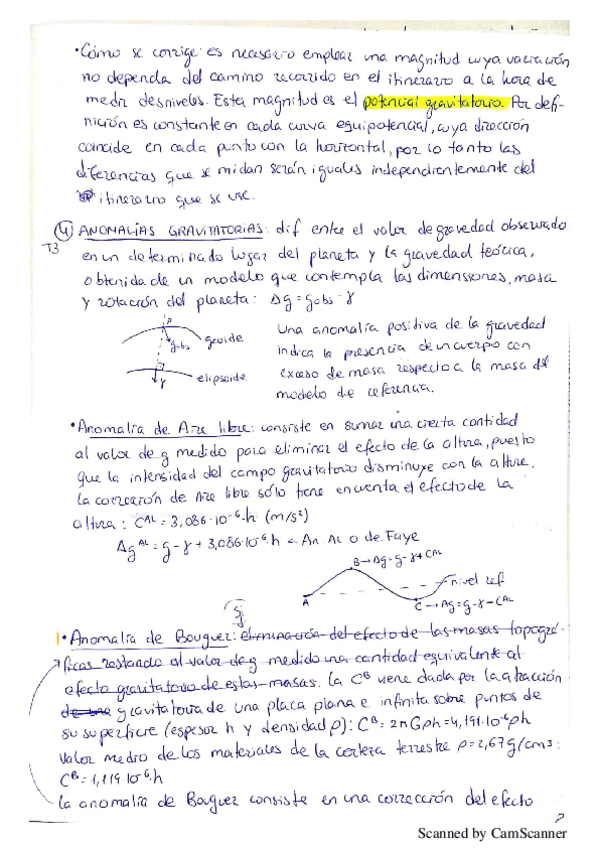 • Cómo se corrige: es necesario emplear una magnitud cuya variación
no dependa del camino recorrido en el itinerario a la hora de
medir desniveles. Esta magnitud es el potencial gravitatorio. Por defi-
nición es constante en cada curva equipotencial, cuya dirección
coincide en cada punto con la horizontal, por lo tanto las
diferencias que se midan serán iguales independientemente del
itinerario que se use.
④ ANOMALÍAS GRAVITATORIAS: dif entre el valor de gravedad observado
T3 en un determinado lugar del planeta y la gravedad teórica,
obtenida de un modelo que contempla las dimensiones, masa
y rotación del planeta: Δg = gobs - γ
P
gobs
geoide
γ
elipsoide
Una anomalía positiva de la gravedad
indica la presencia de un cuerpo con
exceso de masa respecto a la masa del
modelo de referencia.
• Anomalía de Aire libre: consiste en sumar una cierta cantidad
al valor de g medido para eliminar el efecto de la altura, puesto
que la intensidad del campo gravitatorio disminuye con la altura.
La corrección de Aire libre sólo tiene en cuenta el efecto de la
altura: Cᴬᴸ = 3,086·10⁻⁶·h (m/s²)
Δgᴬᴸ = g - γ + 3,086·10⁻⁶·h = An AL o de Faye
B → Δg = g - γ + Cᴬᴸ
nivel ref
A
C → Δg = g - γ - Cᴬᴸ
• Anomalía de Bouguer: eliminación del efecto de las masas topográ-
ficas restando al valor de g medido una cantidad equivalente al
efecto gravitatorio de estas masas. La Cᴮ viene dada por la atracción
de una gravitatoria de una placa plana e infinita sobre puntos de
su superficie (espesor h y densidad ρ): Cᴮ = 2πGρh = 4,191·10⁻⁶ρh
Valor medio de los materiales de la corteza terrestre ρ = 2,67 g/cm³:
Cᴮ = 1,119·10⁻⁶·h
La anomalía de Bouguer consiste en una corrección del efecto
Scanned by CamScanner